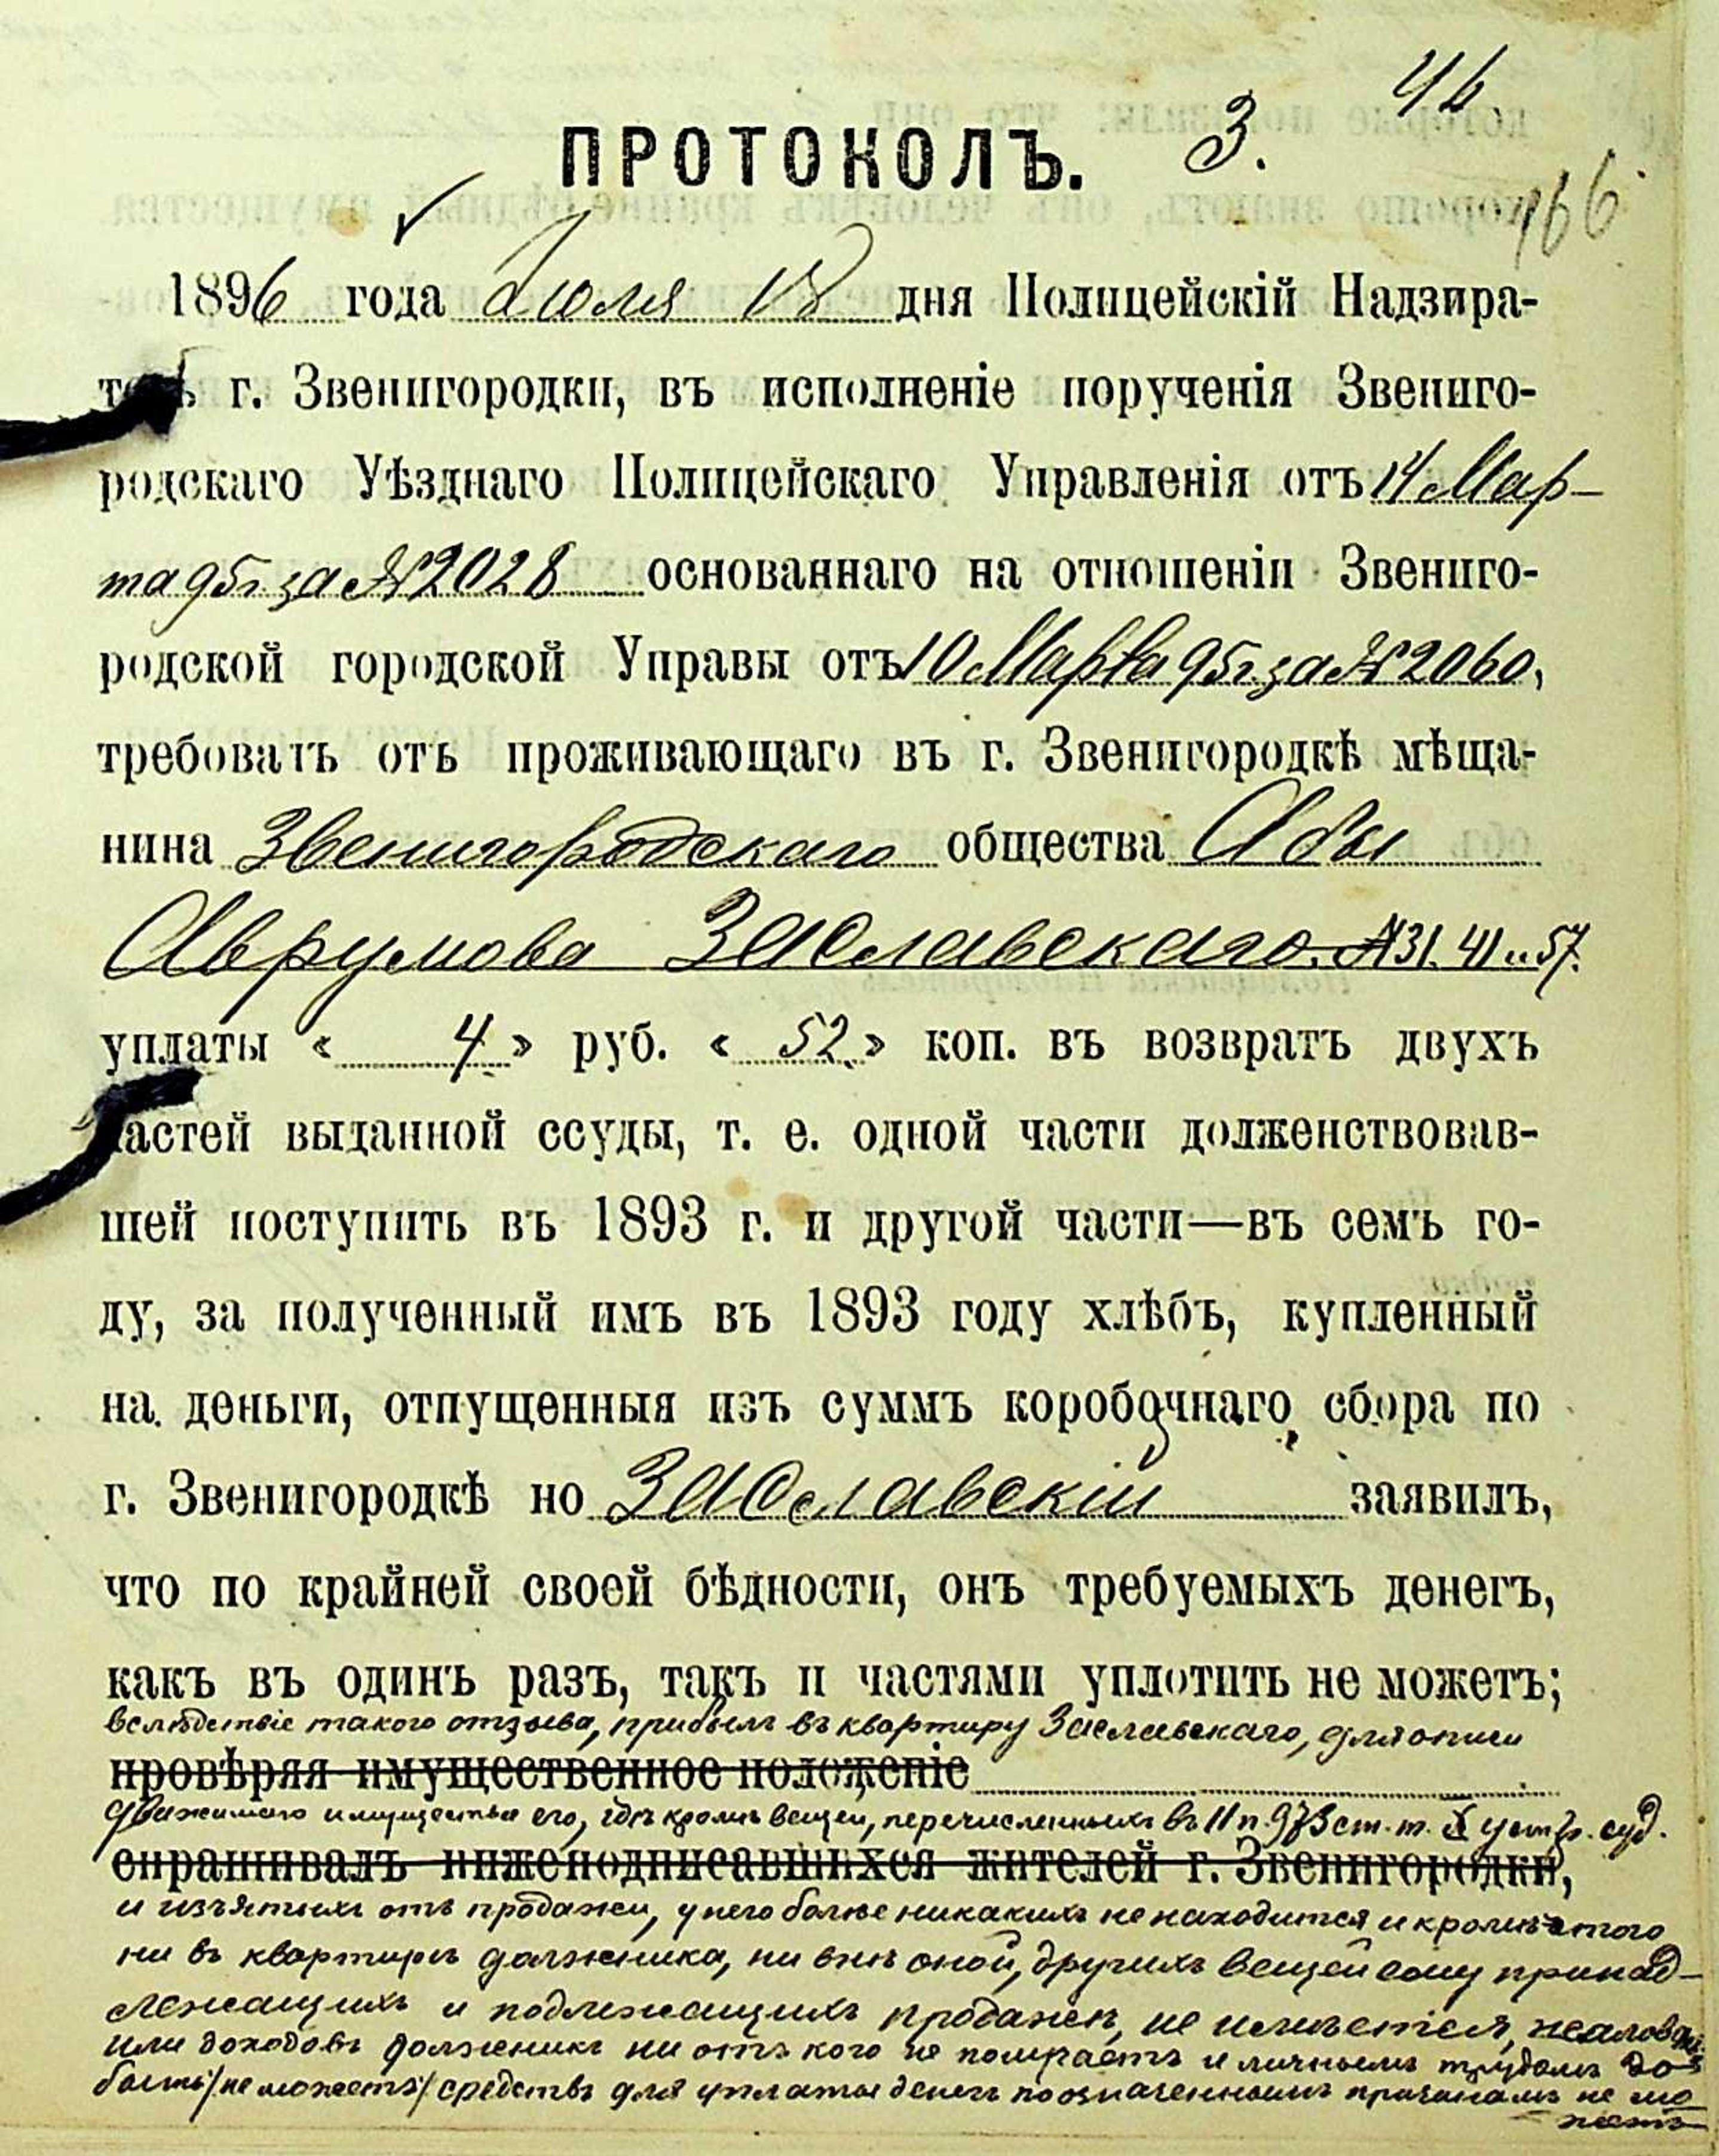 46
ПРОТОКОЛЪ. 3.
166
1896 года Іюля 18 дня Полицейскій Надзира-
тель г. Звенигородки, въ исполненіе порученія Звениго-
родскаго Уѣзднаго Полицейскаго Управленія отъ 14 Мар-
та 95 г. за № 2028 основаннаго на отношеніи Звениго-
родской городской Управы отъ 10 Марта 95 г. за № 2060,
требовать отъ проживающаго въ г. Звенигородкѣ мѣща-
нина Звенигородскаго общества Абы
Аврумова Заславскаго. № 31. 41 и 57.
уплаты « 4 » руб. « 52 » коп. въ возвратъ двухъ
частей выданной ссуды, т. е. одной части долженствовав-
шей поступить въ 1893 г. и другой части—въ семъ го-
ду, за полученный имъ въ 1893 году хлѣбъ, купленный
на деньги, отпущенныя изъ суммъ коробочнаго сбора по
г. Звенигородкѣ но Заславскій заявилъ,
что по крайней своей бѣдности, онъ требуемыхъ денегъ,
какъ въ одинъ разъ, такъ и частями уплотить не можетъ;
вслѣдствіе такого отзыва, прибылъ въ квартиру Заславскаго, для описи
провѣряя имущественное положеніе
движимаго имущества его, гдѣ кромѣ вещей, перечисленныхъ въ 11 п. 973 ст. т. X уст. гр. суд.
спрашивалъ нижеподписавшихся жителей г. Звенигородки,
и изъятыхъ отъ продажи, у него болѣе никакихъ не находится и кромѣ этого
ни въ квартирѣ должника, ни внѣ оной, другихъ вещей ему принад-
лежащихъ и подлежащихъ продажѣ, не имѣется, жалованья
или доходовъ должникъ ни отъ кого не получаетъ и личнымъ трудомъ до-
быть /не можетъ/ средствъ для уплаты денегъ по означеннымъ причинамъ не мо-
жетъ